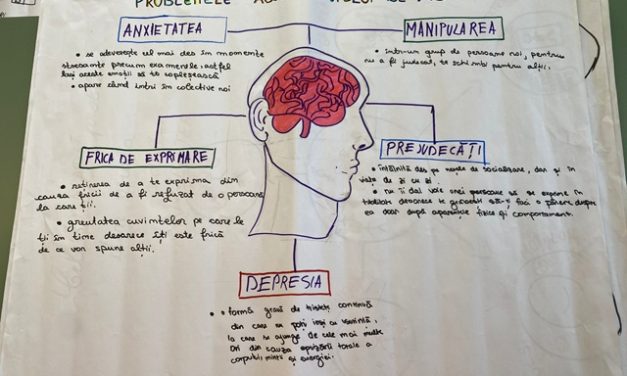 PROBLEMELE
ANXIETATEA
• se adeverește cel mai des în momente
stresante precum examenele, astfel
lași aceste emoții să te copleșească
• apare când intri în colective noi
MANIPULAREA
• într-un grup de persoane noi, pentru
nu a fi judecat, te schimbi pentru alții.
FRICA DE EXPRIMARE
• reținerea de a te exprima din
cauza fricii de a fi refuzat de o persoană
la care ții.
• greutatea cuvintelor pe care le
ții în tine deoarece îți este frică
de ce vor spune alții.
PREJUDECĂȚI
• întâlnită des pe de socializare, dar și în
viața de zi cu zi.
• nu îi dai voie unei persoane să se exprime în
deoarece te să-ți faci o părere despre
ea doar după aparența fizică și comportament.
DEPRESIA
• formă gravă de tristețe continuă
din care se poți ieși cu
la care se ajunge de cele mai multe
Ori din cauza epuizării totale a
corpului, minții și energiei.